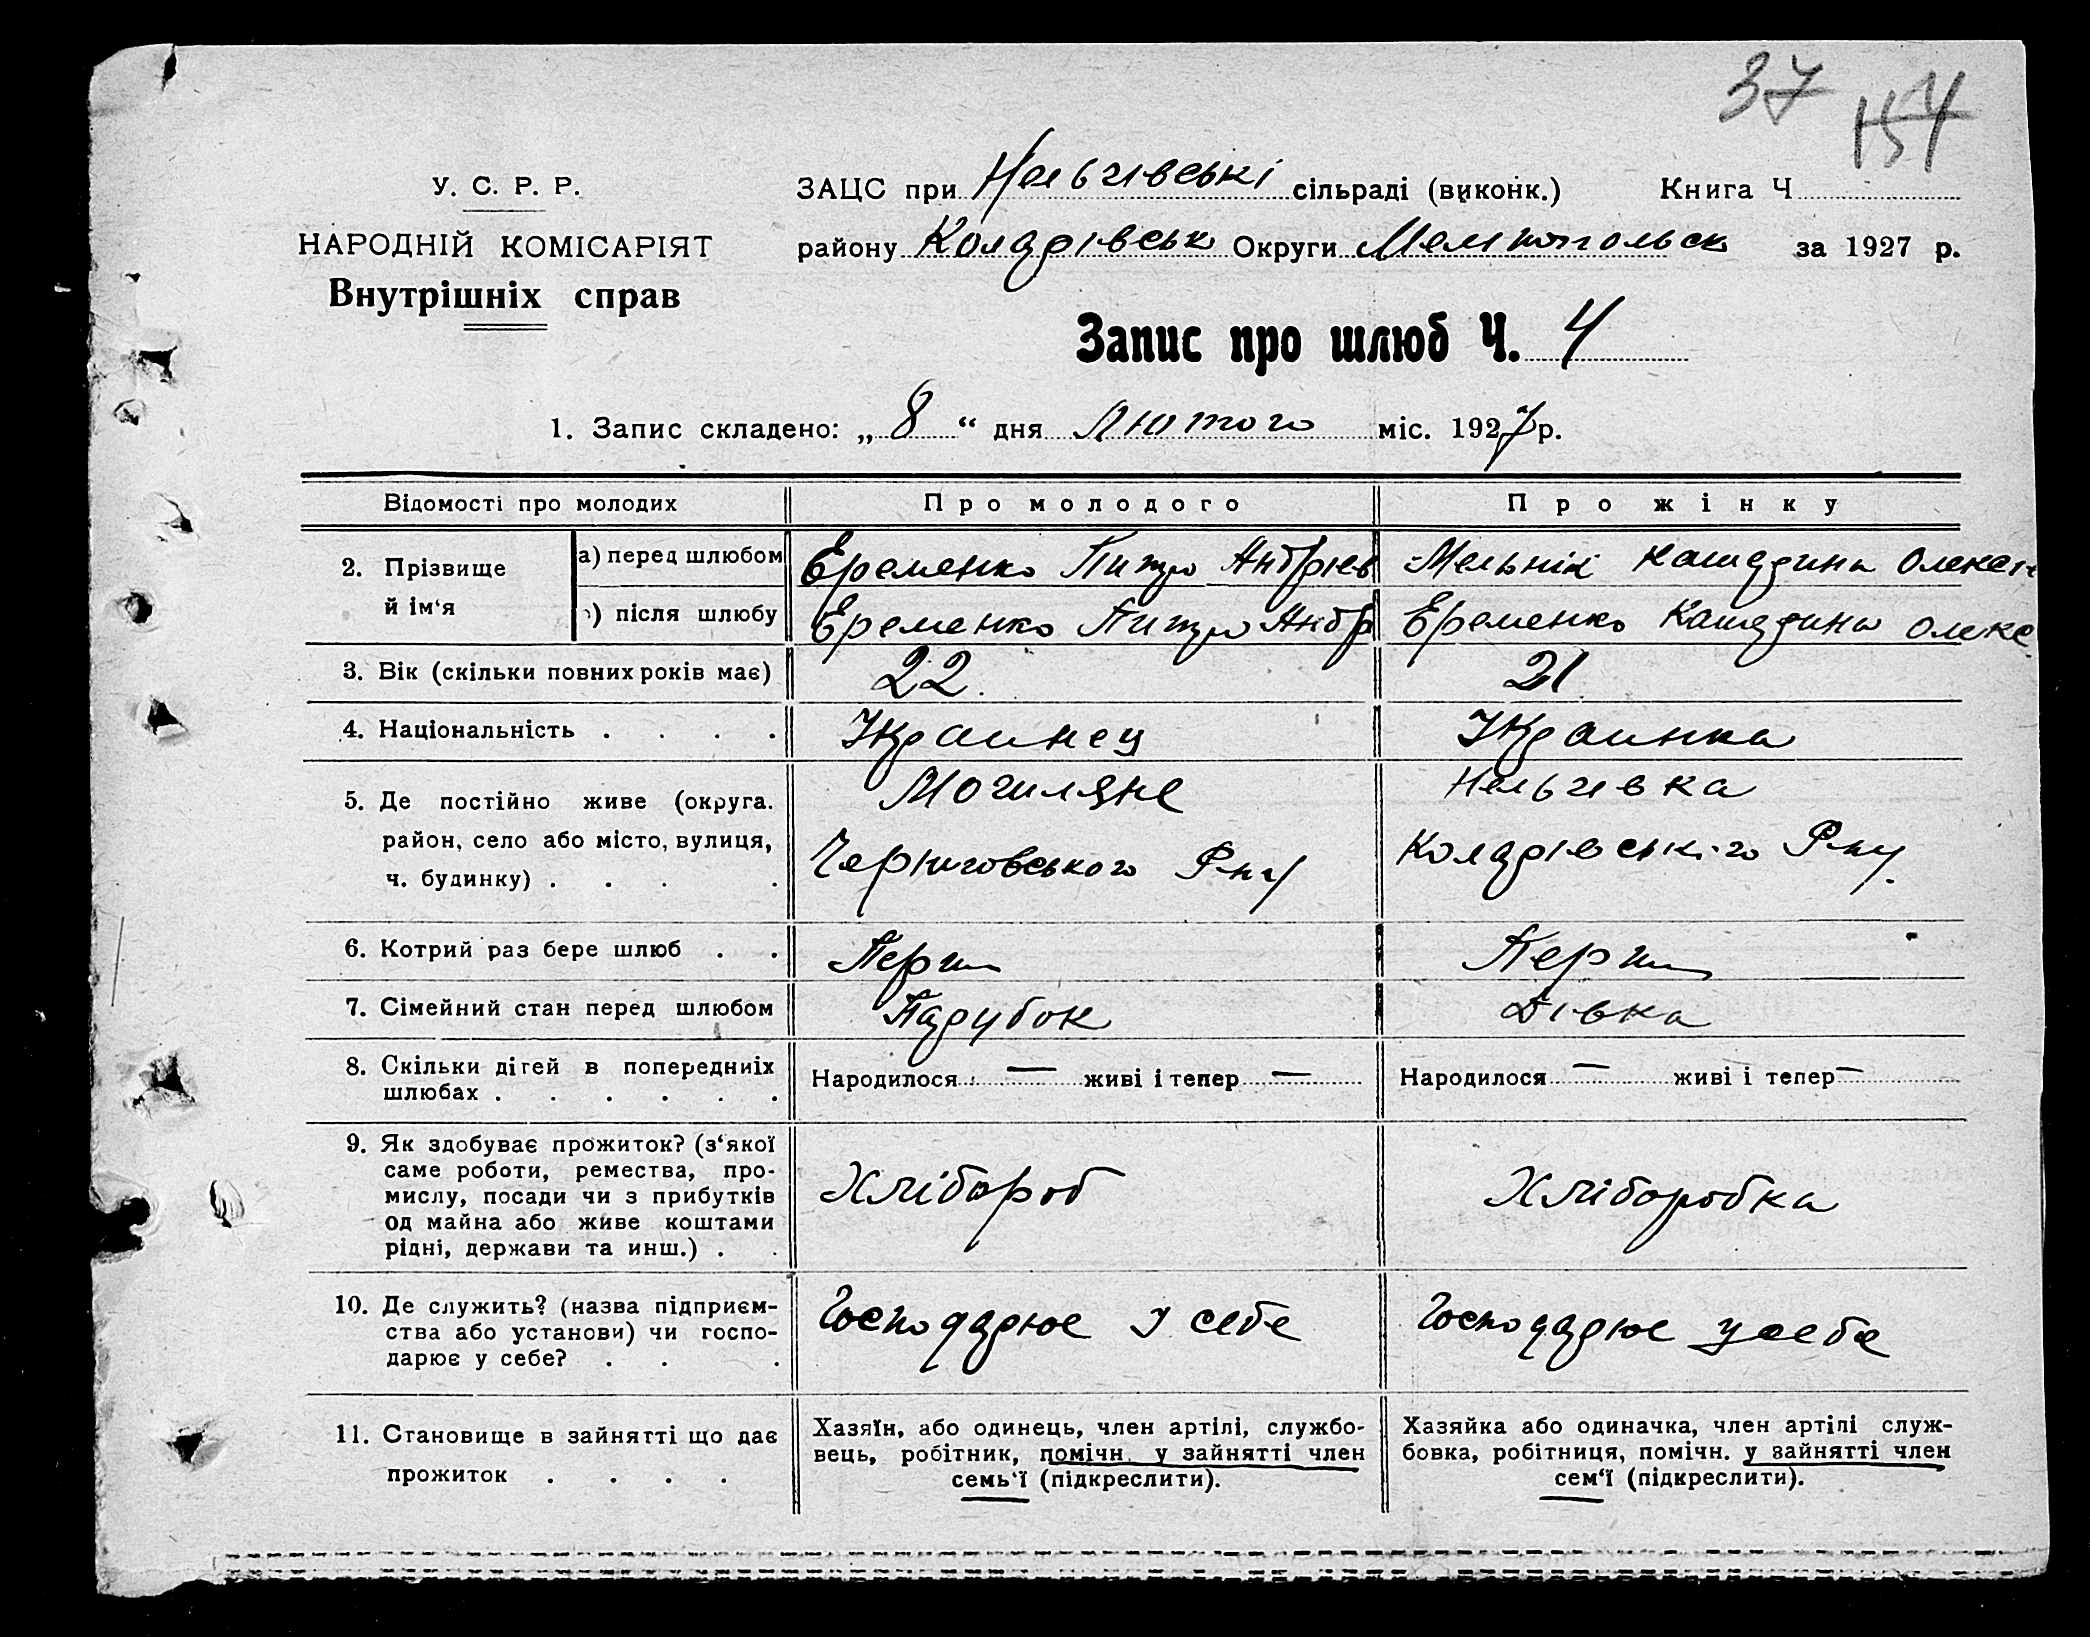 37 154
У. С. Р. Р.
НАРОДНІЙ КОМІСАРІЯТ
Внутрішніх справ
ЗАЦС при Нельгівські сільраді (виконк.) Книга Ч
району Коларівськ Округи Мелітопольськ за 1927 р.
Запис про шлюб Ч. 4
1. Запис складено: „ 8 “ дня Лютого міс. 1927 р.
Відомості про молодих Про молодого Про жінку
2. Прізвище й ім‘я
а) перед шлюбом Еременко Питро Андріев Мельнік Олексан
) після шлюбу Еременко Питро Андр Еременко Олекс
3. Вік (скільки повних років має) 22. 21
4. Національність . . . . Украинец Украинка
5. Де постійно живе (округа. район, село або місто, вулиця, ч. будинку) . . . .
Могиляне
Черниговського Р-ну
Нельгивка
Коларівського Р-ну.
6. Котрий раз бере шлюб . . Перш Перш
7. Сімейний стан перед шлюбом Парубок Дівка
8. Скільки дітей в попередниіх шлюбах . . . . . .
Народилося — живі і тепер — Народилося — живі і тепер —
9. Як здобуває прожиток? (з‘якої
саме роботи, ремества, про-
мислу, посади чи з прибутків
од майна або живе коштами
рідні, держави та инш.) . .
Хлібороб Хліборобка
10. Де служить? (назва підприєм-
ства або установи) чи госпо-
дарює у себе? . . .
Господарює у себе Господарює у себе
11. Становище в зайнятті що дає
прожиток . . . .
Хазяїн, або одинець, член артілі, службо-
вець, робітник, помічн. у зайнятті член
семь‘ї (підкреслити).
Хазяйка або одиначка, член артілі служ-
бовка, робітниця, помічн. у зайнятті член
сем‘ї (підкреслити).